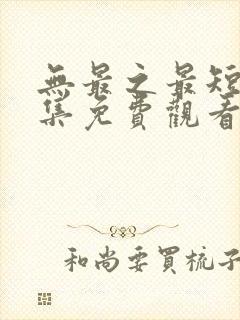 無最之最短
集免費觀看
和尚要買梳子